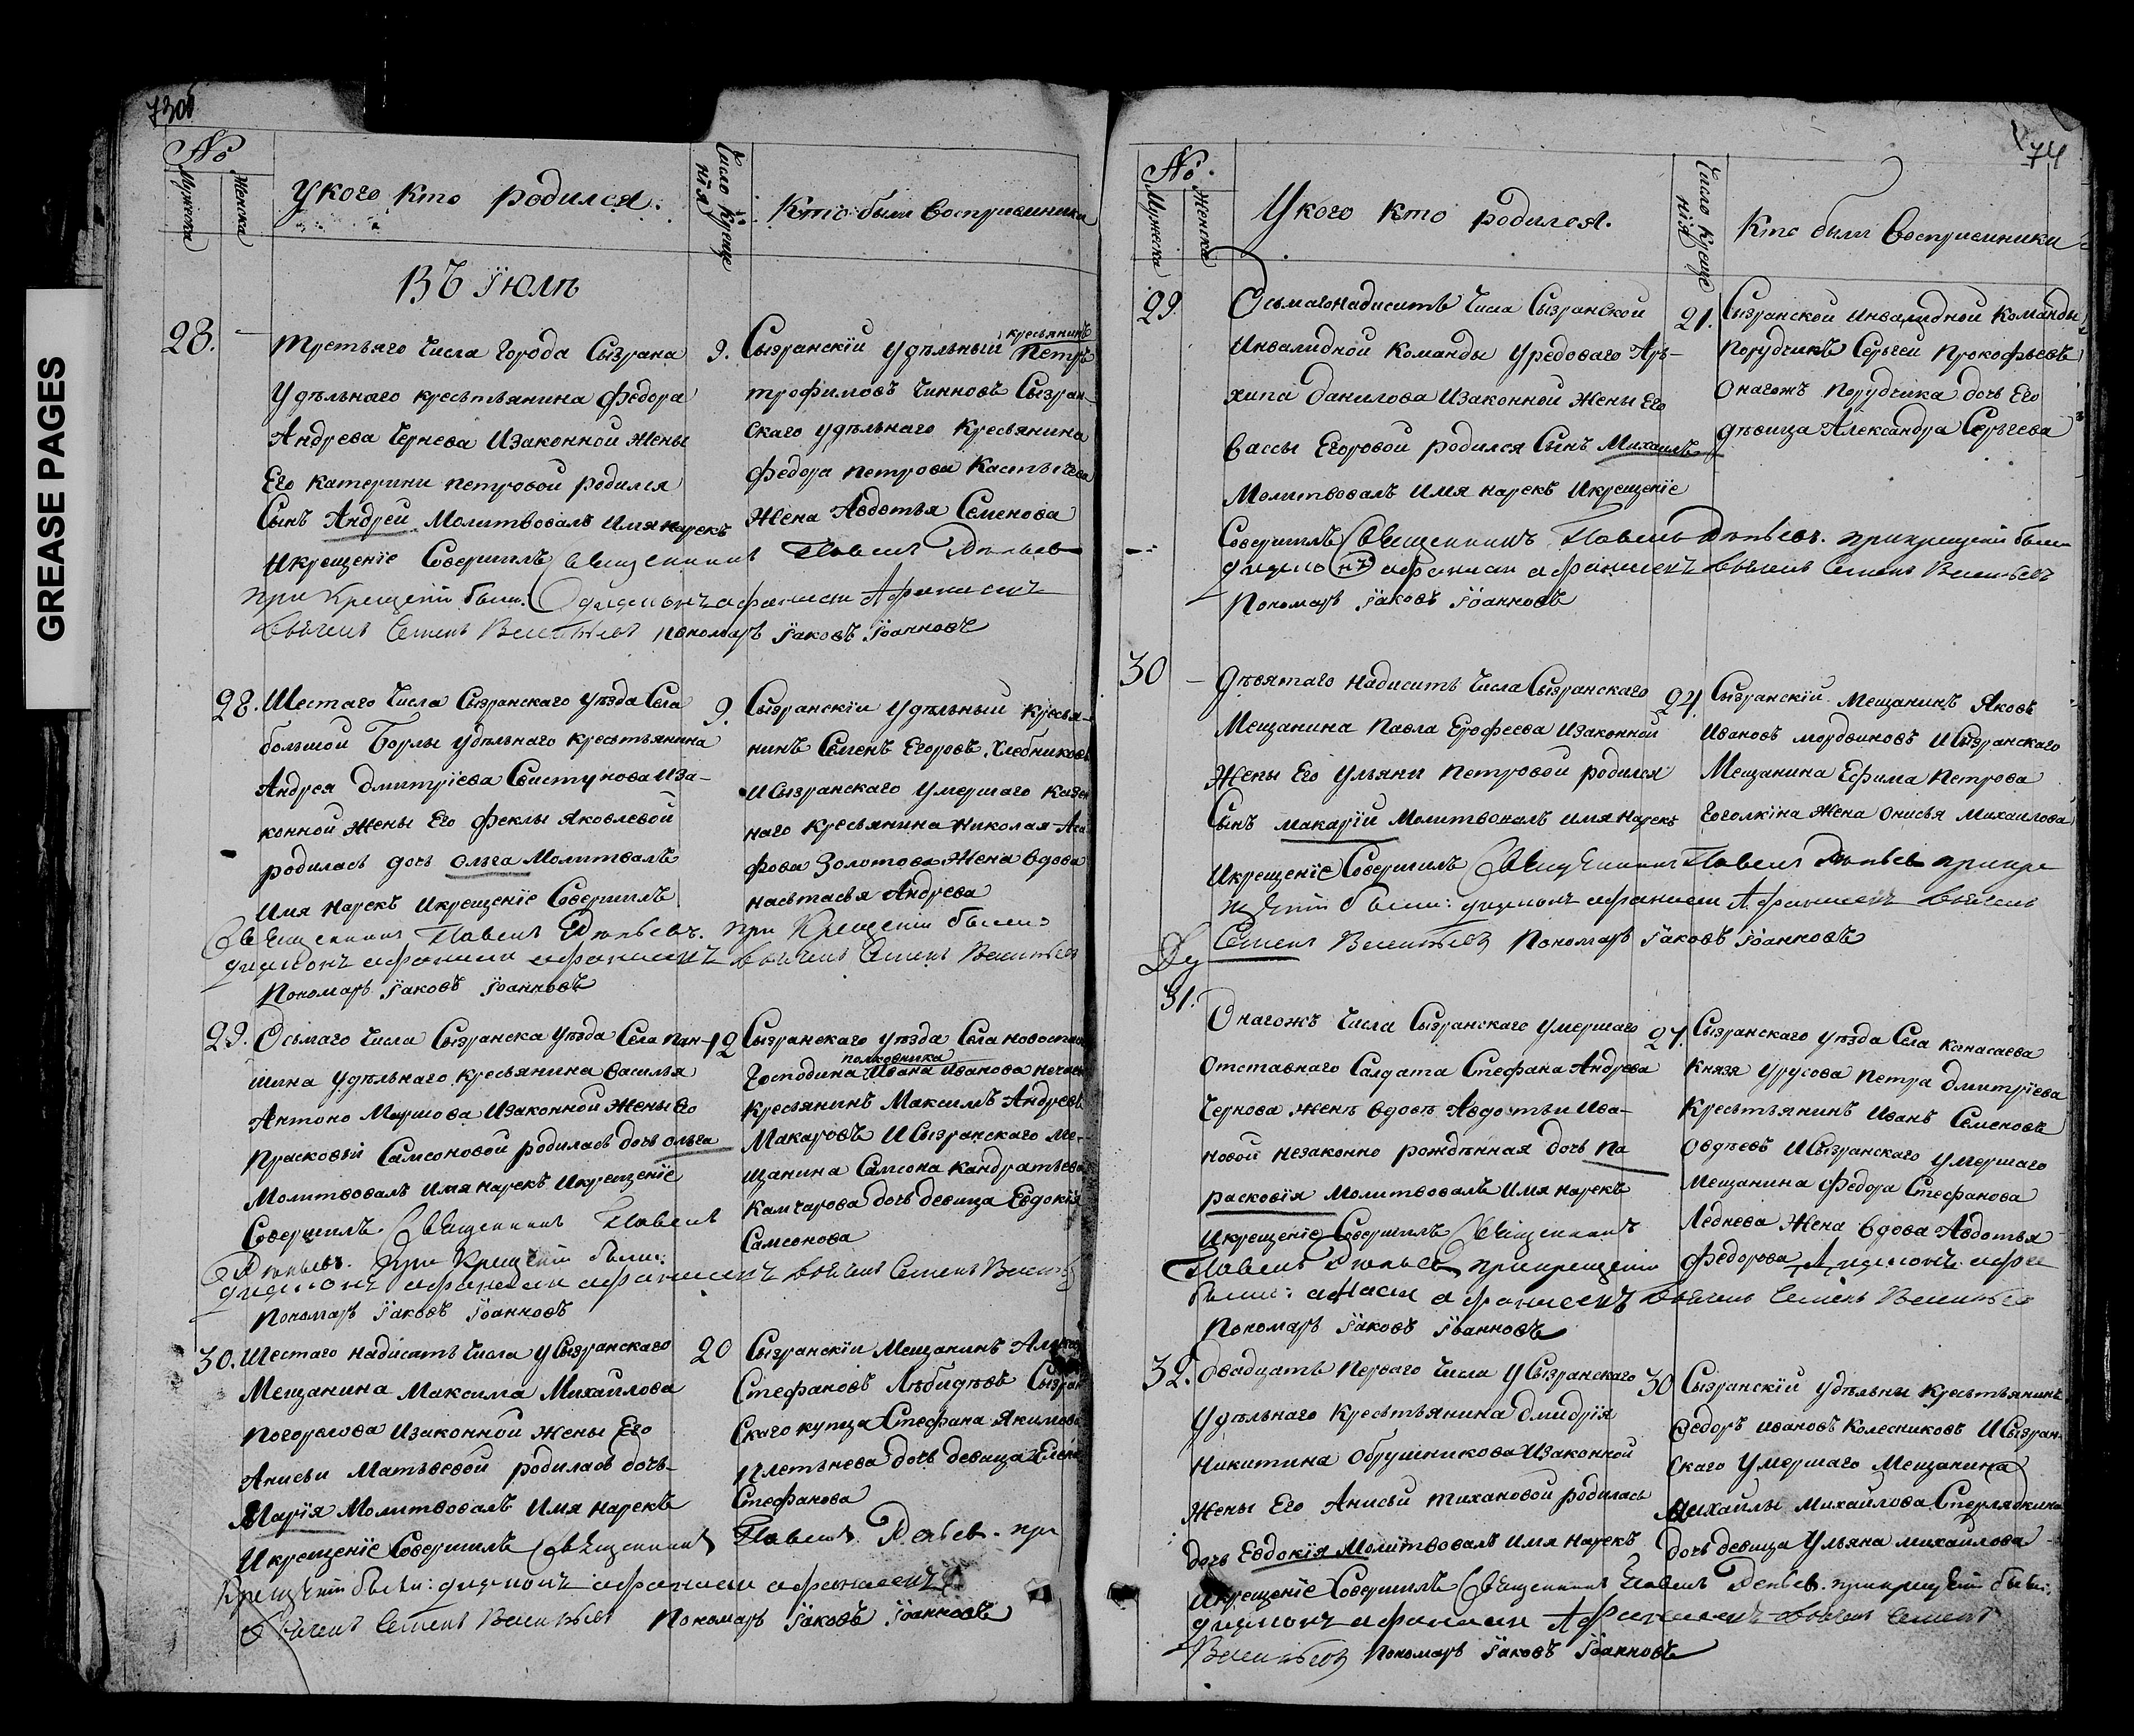 GREASE PAGES
73об
№
Мужеска
Женска
У кого кто родился.
Число Креще
нїя
Кто были восприемники
Въ Їюлѣ
28.
третьяго числа города Сызрана
удѣльнаго крестьянина Федора
Андреева Чернева и законной жены
его Катерины Петровой родился
сынъ Андрей молитвовалъ имя нарекъ
и крещенїе совершилъ Священникъ Павелъ
при крещенїи были:
пономарь Їаковъ Їоанновъ
9.
Сызранскїй удѣльный крестьянинъ Петръ
трофимовъ Чинновъ Сызран-
скаго удѣльнаго крестьянина
Федора Петрова
жена Авдотья Семенова
28. Шестаго числа Сызранскаго уѣзда села
большой Борлы удѣльнаго крестьянина
Андрея Дмитрїева Свистунова и за-
конной жены его Феклы Яковлевой
родилась дочь Ольга молитвалъ
имя нарекъ и крещенїе совершилъ
Священникъ Павелъ при крещенїи были
Семенъ Васильевъ
Пономарь Їаковъ Їоанновъ
9.
Сызранскїй удѣльный крестья-
нинъ Семенъ Егоровъ Хлебниковъ
и Сызранскаго умершаго казен
наго крестьянина Николая Ага
фова Золотова жена вдова
настасья Андреева
29. Осьмаго числа Сызранска уѣзда села Пан-
шина удѣльнаго крестьянина Василья
Антоно Маршова и законной жены его
Прасковьи Самсоновой родилась дочь Ольга
молитвовалъ имя нарекъ и крещенїе
совершилъ Священникъ Павелъ
при крещенїи были:
Семенъ
Пономарь Їаковъ Їоанновъ
12
Сызранскаго уѣзда села
полковника
Господина Ивана Иванова
крестьянинъ Максимъ Андреевъ
Макаровъ и Сызранскаго ме-
щанина Самсона Кандратьева
Камчарова дочь девица Евдокїя
Самсонова
30. Шестаго надисять числа у Сызранскаго
мещанина Максима Михайлова
Погорелова и законной жены его
Анисьи Матвѣевой родилась дочь
Марїя молитвовалъ имя нарекъ
и крещенїе совершилъ Священникъ Павелъ при
крещенїи были:
Семенъ Васильевъ Пономарь Їаковъ Їоанновъ
20
Сызранскїй мещанинъ
Стефановъ Лѣбидѣвъ Сызран
скаго купца Стефана Якимова
Плетьнева дочь девица Елена
Стефанова
74
№.
Мужеска
Женска
У кого кто родился.
Число Креще
нїя
Кто были восприемники
29.
Осьмагонадисить числа Сызранской
инвалидной команды урядоваго Ар-
хипа Данилова и законной жены его
Вассы Егоровой родился сынъ Михаилъ
молитвовалъ имя нарекъ и крещенїе
совершилъ Священникъ Павелъ при крещенїи были
Семенъ Васильевъ
Пономарь Їаковъ Їоанновъ
21.
Сызранской инвалидной команды
порудчикъ Сергей Прокофьевъ
онагожъ порудчика дочь его
дѣвица Александра Сергеева
30
Девятаго надисить числа Сызранскаго
мещанина Павла Ерофеева и законной
жены его Ульяны Петровой родился
сынъ Макарїй молитвовалъ имя нарекъ
и крещенїе совершилъ Священникъ Павелъ при кре
щенїи были:
Семенъ Васильевъ Пономарь Їаковъ Їоанновъ
24.
Сызранскїй мещанинъ Яковъ
Ивановъ Мордвиновъ и Сызранскаго
мещанина Ефима Петрова
жена Онисья Михайлова
31.
Онагожъ числа Сызранскаго умершаго
отставнаго салдата Стефана Андреева
Чернова жена вдова Авдотьи Ива-
новой незаконно рожденная дочь Па
расковїя молитвовалъ имя нарекъ
и крещенїе совершилъ Священникъ
Павелъ при крещенїи
были: Семенъ
Пономарь Їаковъ Їоанновъ
27.
Сызранскаго уѣзда села Канасаева
князя Урусова Петра Дмитрїева
крестьянинъ Иванъ Семеновъ
Овдѣевъ и Сызранскаго умершаго
мещанина Федора Стефанова
Леднева жена вдова Авдотья
Федорова
32.
Двадцать перваго числа у Сызранскаго
удѣльнаго крестьянина Дмидрїя
Никитина Обрушникова и законной
жены его Анисьи Тихановой родилась
дочь Евдокїя молитвовалъ имя нарекъ
и крещенїе совершилъ Священникъ Павелъ при крещенїи были:
Семенъ
Васильевъ Пономарь Їаковъ Їоанновъ
30
Сызранскїй удѣльны крестьянинъ
Федоръ Ивановъ Колесниковъ и Сызран-
скаго умершаго мещанина
Михайлы Михайлова Стерлядкина
дочь девица Ульяна Михайлова